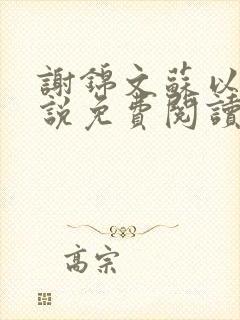 謝錦文蘇以
說免費閱讀
高宗